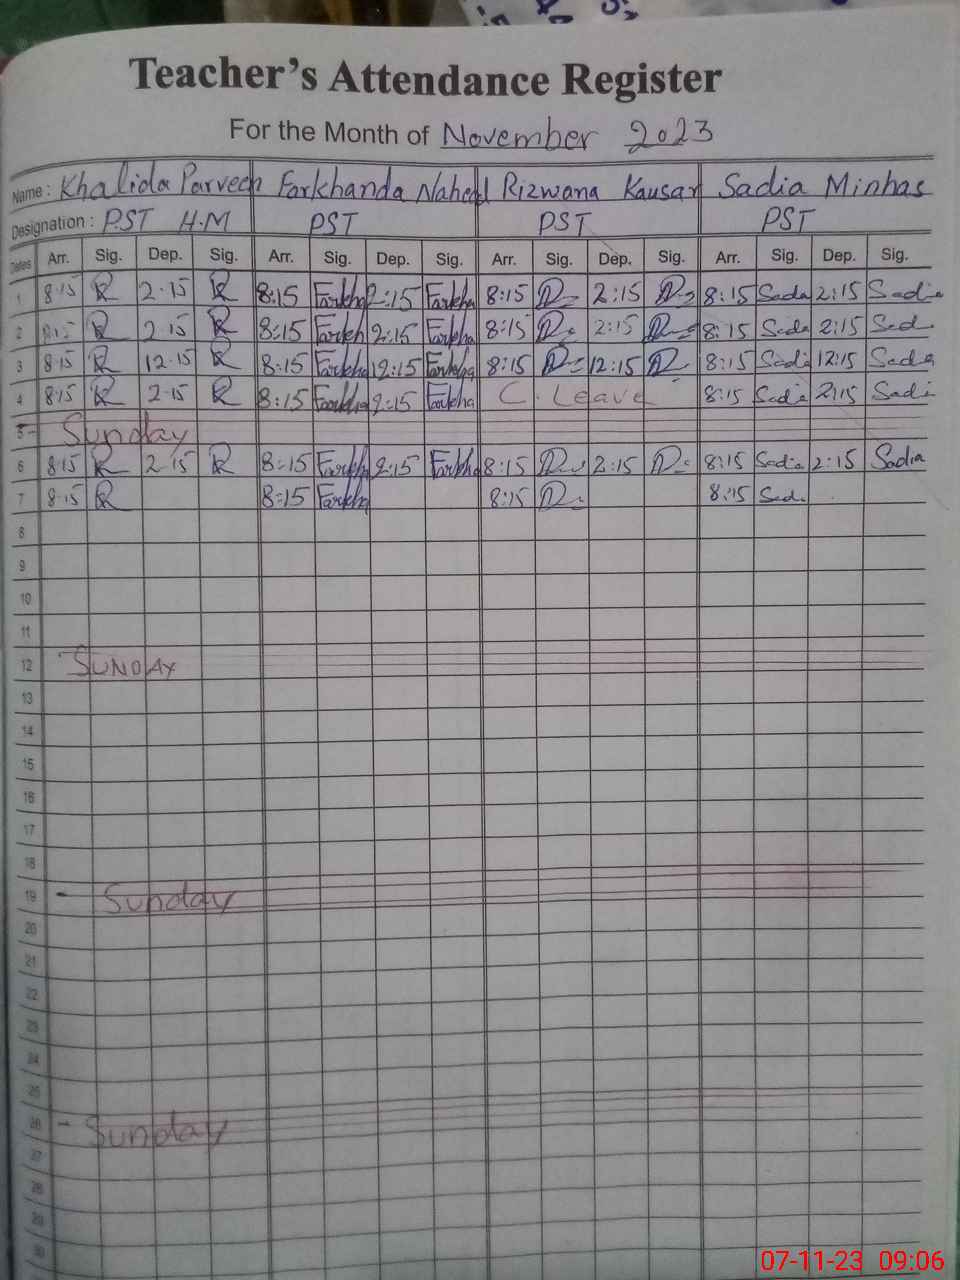 Teacher's Attendance Register
For the Month of November 2023
Name : Khalida Parveen Farkhanda Naheed Rizwana Kausar Sadia Minhas
Designation : P.ST H.M PST PST PST
Dates Arr. Sig. Dep. Sig. Arr. Sig. Dep. Sig. Arr. Sig. Dep. Sig. Arr. Sig. Dep. Sig.
1 8:15 2.15 8:15 Farkha 2:15 Farkha 8:15 2:15 8:15 Sada 2:15 Sadia
2 8:15 2.15 8:15 Farkh 2:15 Farkha 8:15 2:15 8:15 Sada 2:15 Sad
3 8:15 12.15 8:15 Farkha 12:15 Farkha 8:15 12:15 8:15 Sadia 12:15 Sada
4 8:15 2.15 8:15 Farkha 2:15 Farkha C. Leave 8:15 Sadi 2:15 Sadi
5 - Sunday
6 8:15 2.15 8:15 Farkh 2:15 Farkha 8:15 2:15 8:15 Sadia 2:15 Sadia
7 8.15 8:15 Farkha 8:15 8:15 Sad
8
9
10
11
12 SUNDAY
13
14
15
16
17
18
19 - Sunday
20
21
22
23
24
25
26 - Sunday
27
28
29
30
07-11-23 09:06